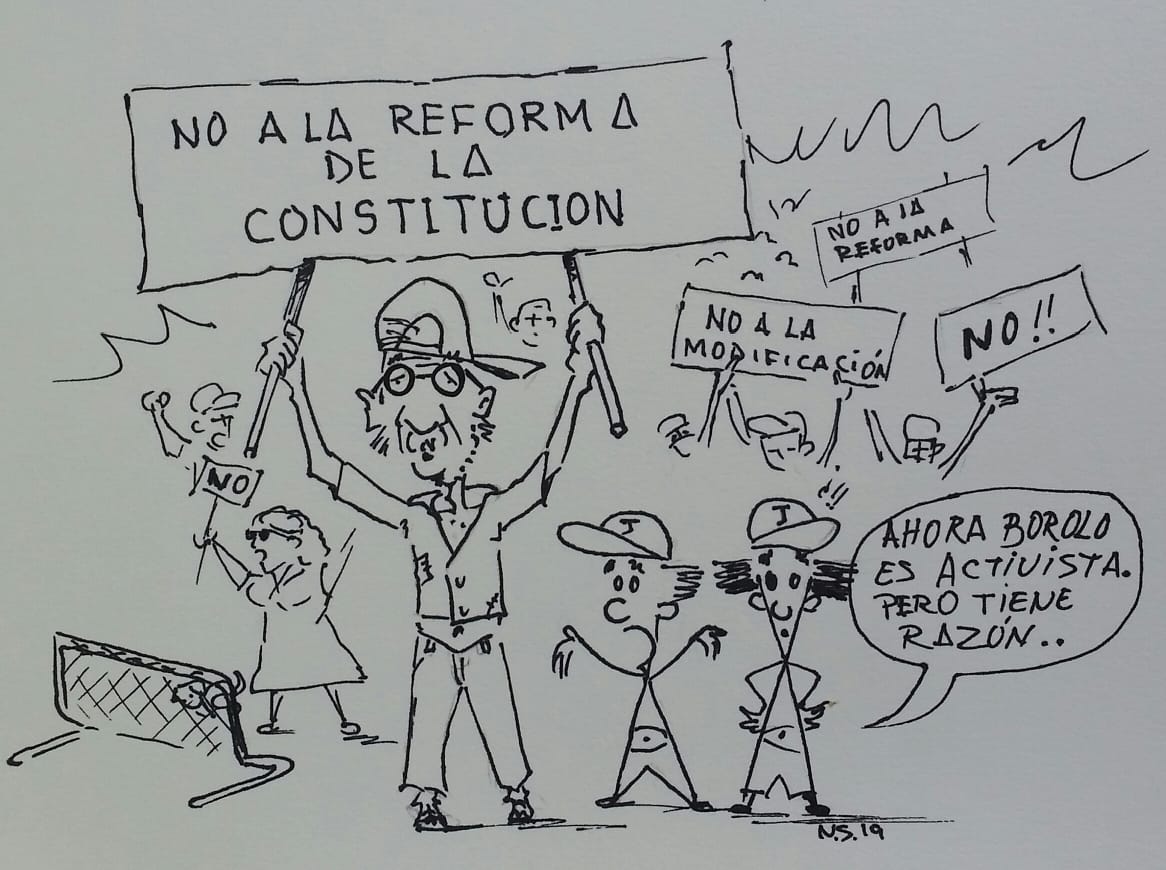 NO A LA REFORMA
DE LA
CONSTITUCION
NO A lA
REFORMA
NO A LA
MODIFICACIÓN
NO!!
NO
J
J
AHORA BOROLO
ES ACTIVISTA.
PERO TIENE
RAZÓN..
N.S. 19